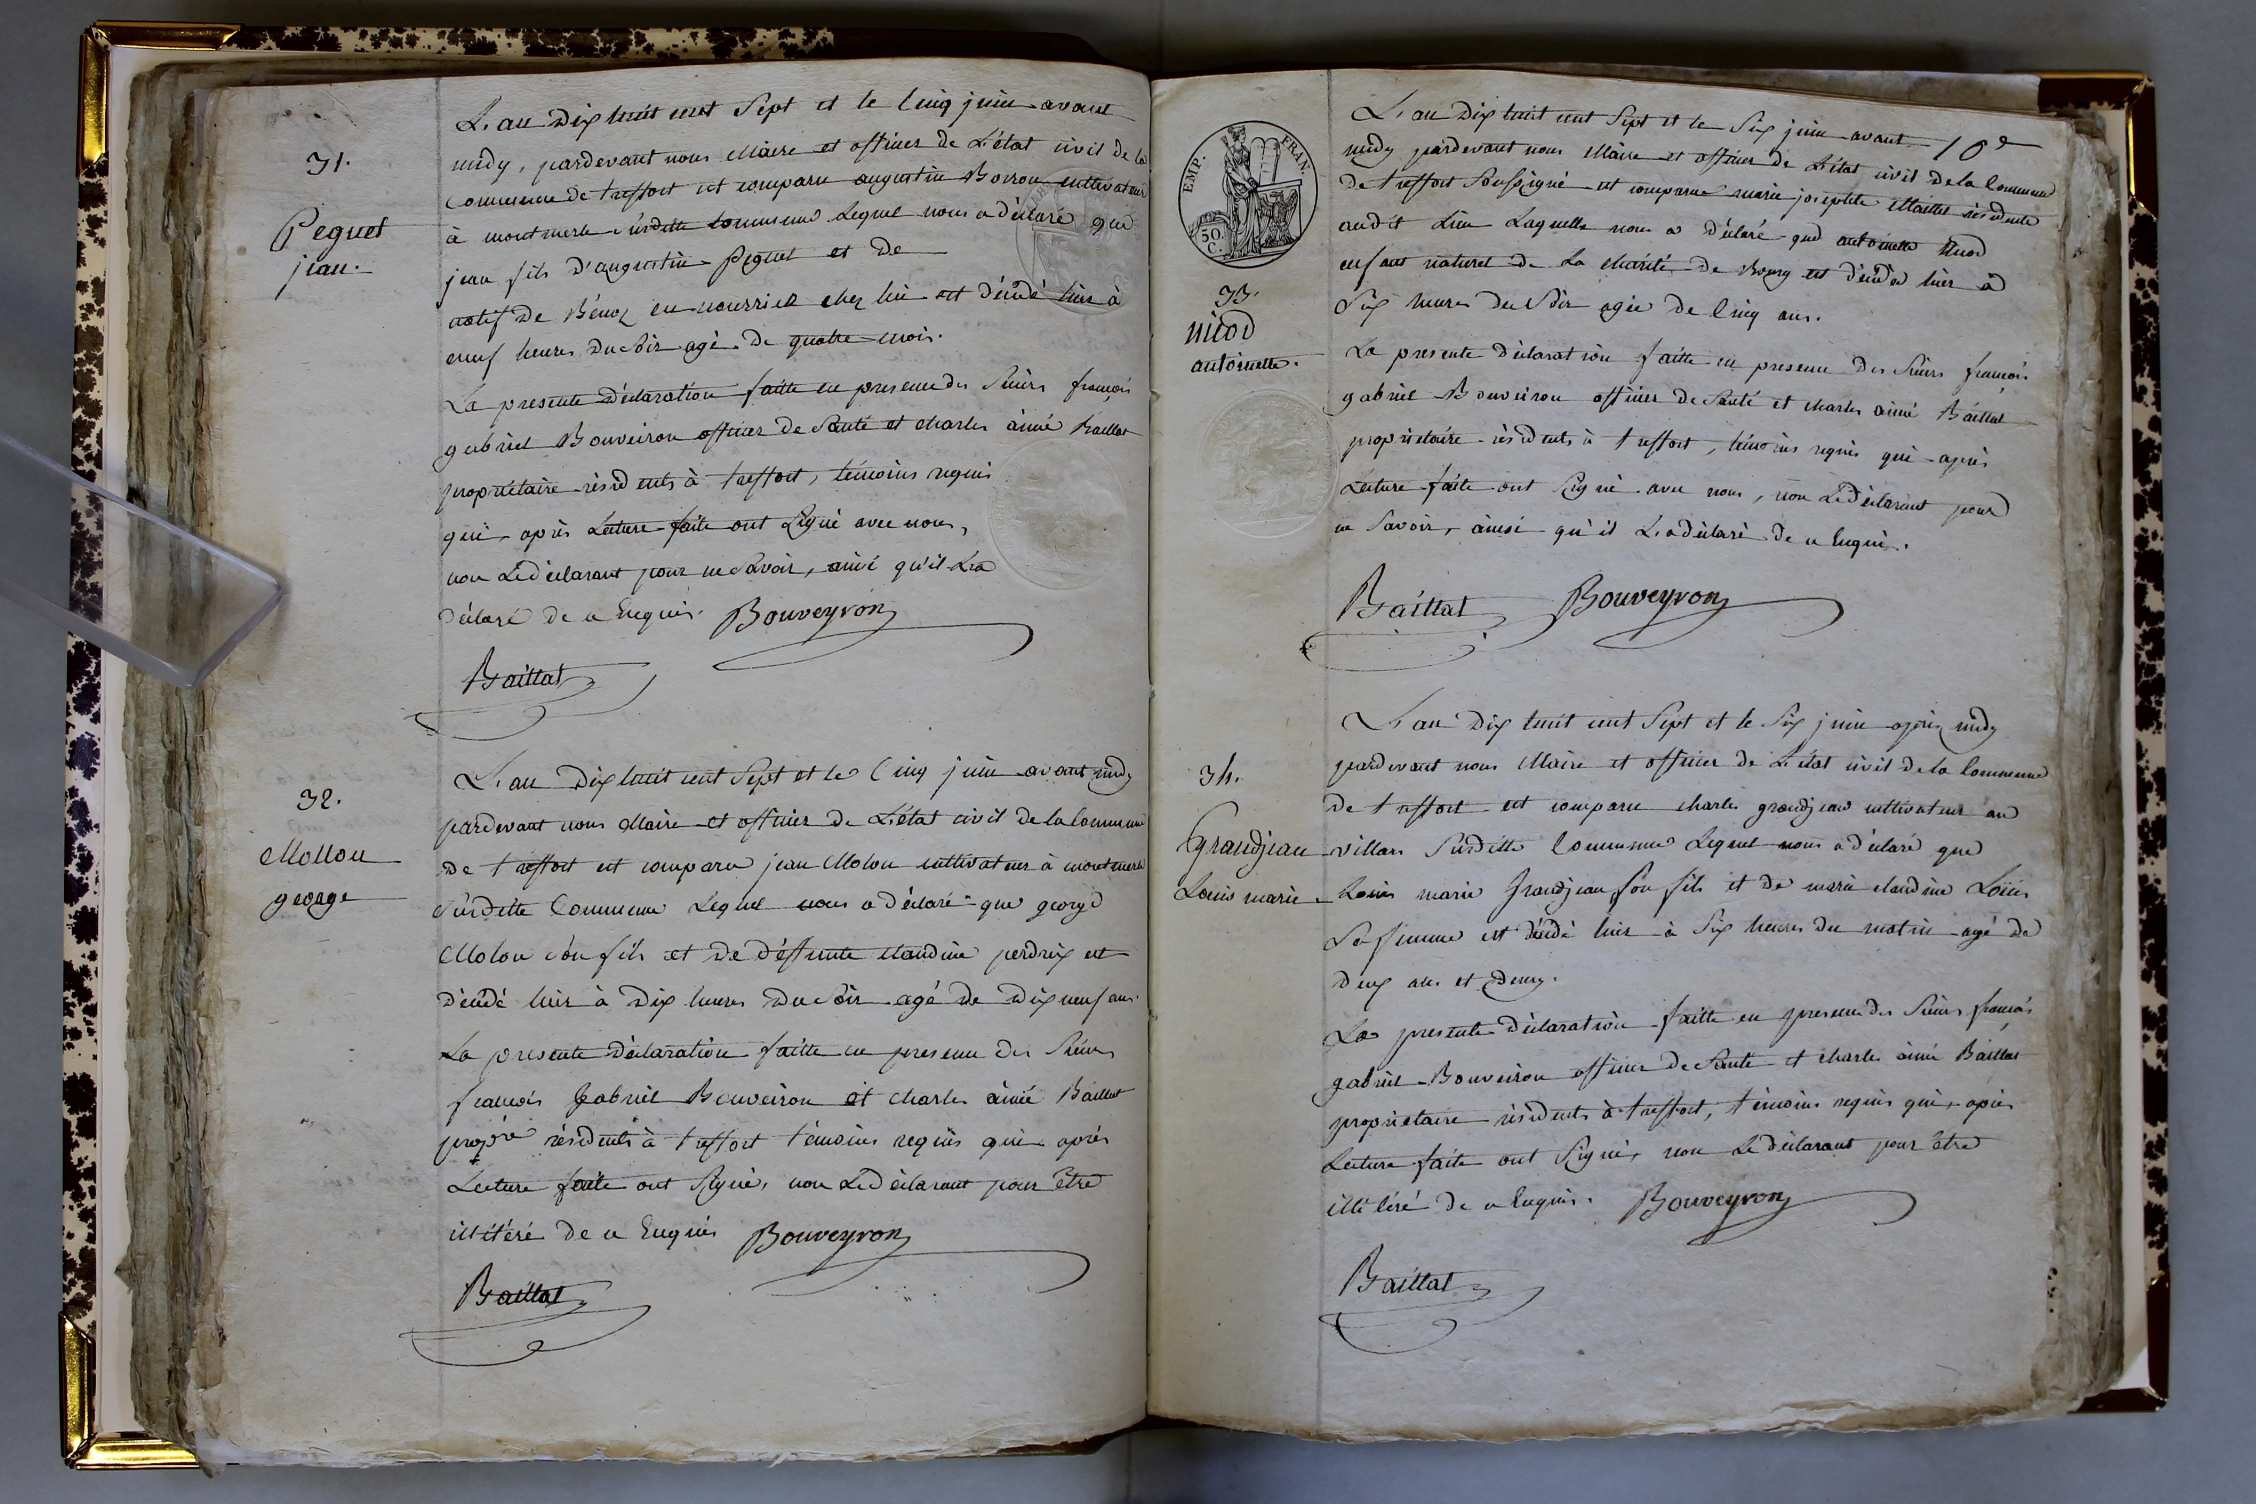 31.
Peguet
jean.
L'an Dix huit cent Sept et le Cinq juin avant
midy, pardevant nous Maire et officier de L'état civil de la
Commune de treffort est comparu augustin Borron cultivateur
à montmerle susditte Commune Lequel nous a déclaré que
jean fils d'augustin Peguet et de
natif de Bénoz en nourrice chez lui est décédé hier à
neuf heures Du Soir agé De quatre mois.
La presente Déclaration faitte en presence des Sieurs françois
gabriel Bouveiron officier De Santé et charles aimé Baillat
propriétaire résidents à treffort, témoins requis
qui après Lecture faite ont Signé avec nous,
non Le déclarant pour ne Savoir, ainsi qu'il L'a
Déclaré De ce Enquis. Bouveyron
Baillat
32.
Mollon
george
L'an Dix huit cent Sept et le Cinq juin avant midy
pardevant nous Maire et officier de L'état civil de la Commune
de treffort est comparu jean Molon cultivateur à montmerle
Susditte Commune Lequel nous a déclaré que george
Molon son fils et de deffunte Claudine perdrix est
décédé hier à Dix heures Du Soir agé de Dix neuf ans.
La presente Déclaration faitte en presence des Sieurs
francois Gabriel Bouveiron et charles aimé Baillat
propre résidents à treffort témoins requis qui après
Lecture faite ont Signé, non Le déclarant pour être
illitéré de ce Enquis Bouveyron
Baillat
10e
EMP. FRAN.
50. C.
33.
nicod
antoinette.
L'an Dix huit cent Sept et le Six juin avant
midy pardevant nous Maire et officier de L'état civil de la Commune
de treffort Soussigné est comparue marie josephte Maillet résidente
audit Lieu Laquelle nous a déclaré que antoinette Nicod
enfant naturel de La charité de Bourg est décédée hier à
Six heures du Soir agée de Cinq ans.
La presente déclaration faitte en presence des Sieurs françois
gabriel Bouveiron officier de Santé et charles aimé Baillat
propriétaire résidents à treffort, témoins requis qui après
Lecture faite ont Signé avec nous, non Le déclarant pour
ne Savoir, ainsi qu'il L'a déclaré de ce Enquis.
Baillat Bouveyron
34.
Grandjean
Louis marie
L'an Dix huit cent Sept et le Six juin après midy
pardevant nous Maire et officier de L'état civil de la Commune
de treffort est comparu charles grandjean cultivateur au
villars Susditte Commune Lequel nous a déclaré que
Louis marie Grandjean Son fils et de marie claudine Loüis
Sa femme est décédé hier à Six heures du matin agé de
deux ans et Demy.
La presente Déclaration faitte en presence des Sieurs françois
gabriel Bouveiron officier De Santé et charles aimé Baillat
propriétaire résidents à treffort, témoins requis qui après
Lecture faite ont Signé, non Le déclarant pour être
illitéré de ce Enquis. Bouveyron
Baillat